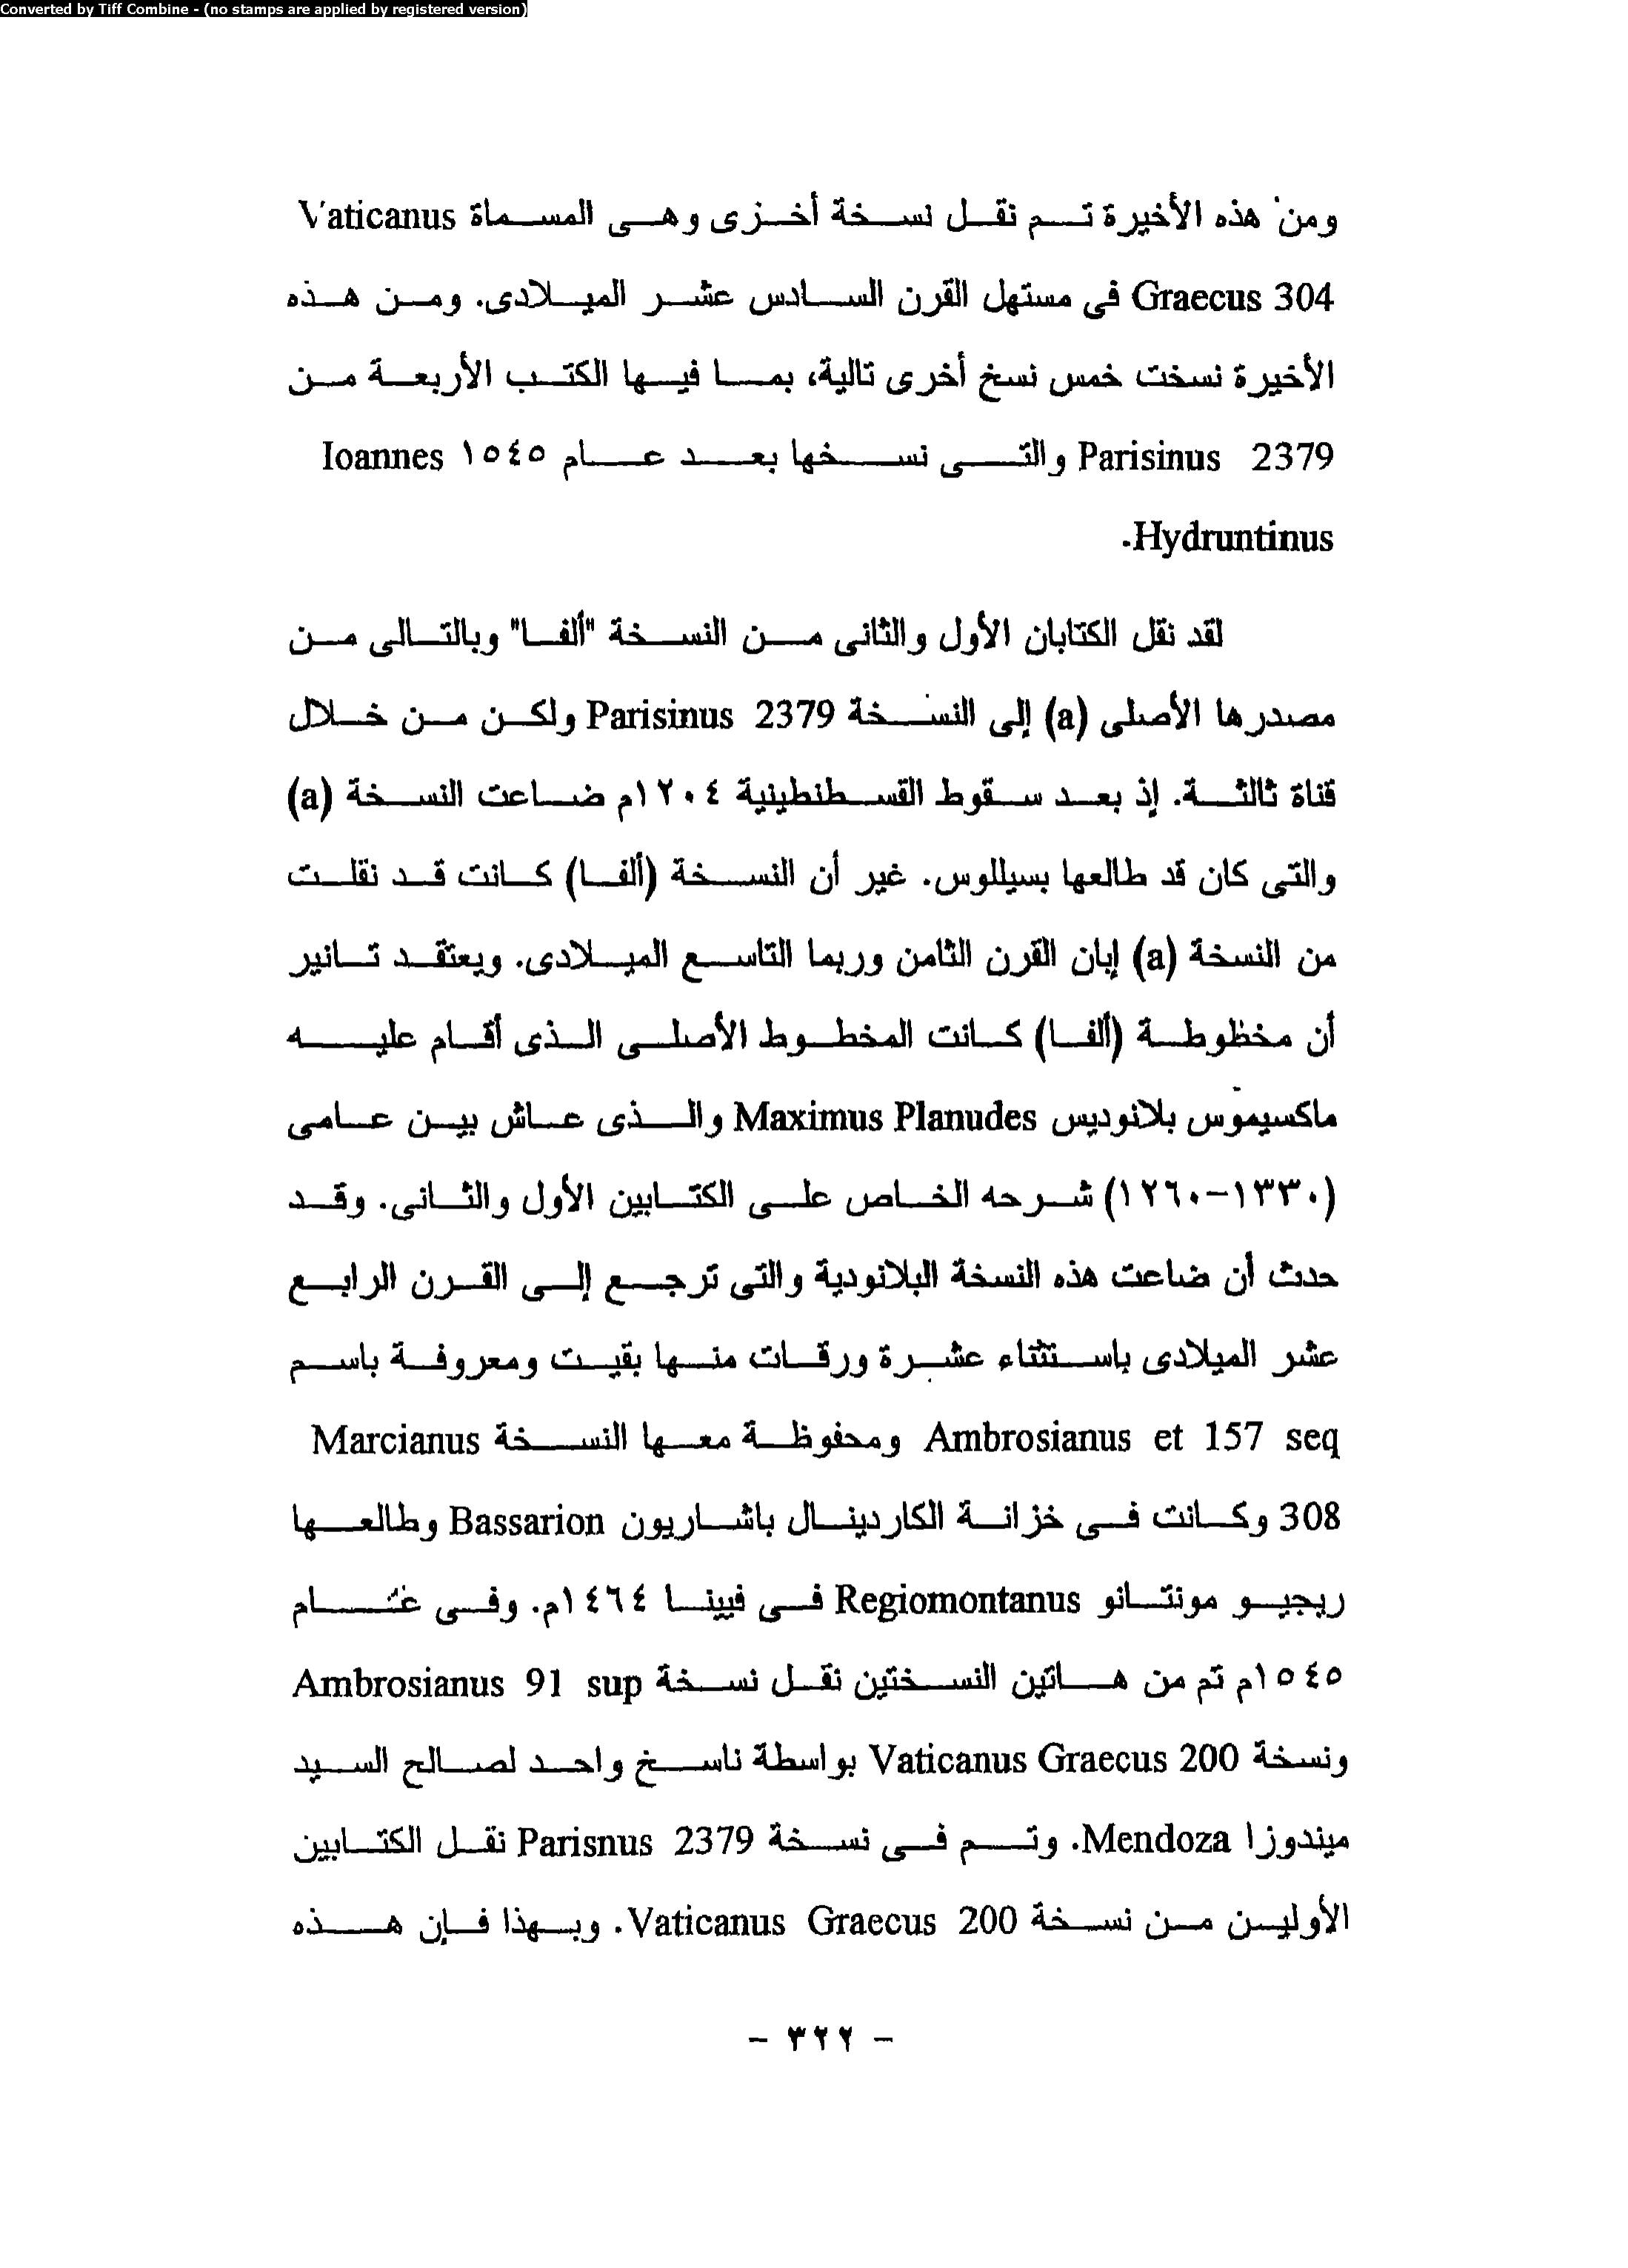 Converted by Tiff Combine - (no stamps are applied by registered version)
ومن هذه الأخيرة تم نقل نسخة أخرى وهى المسماة Vaticanus
Graecus 304 فى مستهل القرن السادس عشر الميلادى. ومن هذه
الأخيرة نسخت خمس نسخ أخرى تالية، بما فيها الكتب الأربعة من
Parisinus 2379 والتى نسخها بعد عام ١٥٤٥ Ioannes
Hydruntinus.
لقد نقل الكتابان الأول والثانى من النسخة "ألفا" وبالتالى من
مصدرها الأصلى (a) إلى النسخة Parisinus 2379 ولكن من خلال
قناة ثالثة. إذ بعد سقوط القسطنطينية ١٢٠٤م ضاعت النسخة (a)
والتى كان قد طالعها بسيللوس. غير أن النسخة (ألفا) كانت قد نقلت
من النسخة (a) إبان القرن الثامن وربما التاسع الميلادى. ويعتقد تانير
أن مخظوطة (ألفا) كانت المخطوط الأصلى الذى أقام عليه
ماكسيموس بلانوديس Maximus Planudes والذى عاش بين عامى
(١٢٦٠-١٣٣٠) شرحه الخاص على الكتابين الأول والثانى. وقد
حدث أن ضاعت هذه النسخة البلانودية والتى ترجع إلى القرن الرابع
عشر الميلادى باستثناء عشرة ورقات منها بقيت ومعروفة باسم
Ambrosianus et 157 seq ومحفوظة معها النسخة Marcianus
308 وكانت فى خزانة الكاردينال باشاريون Bassarion وطالعها
ريجيو مونتانو Regiomontanus فى فيينا ١٤٦٤م. وفى عام
١٥٤٥م تم من هاتين النسختين نقل نسخة Ambrosianus 91 sup
ونسخة Vaticanus Graecus 200 بواسطة ناسخ واحد لصالح السيد
ميندوزا Mendoza. وتم فى نسخة Parisnus 2379 نقل الكتابين
الأوليين من نسخة Vaticanus Graecus 200. وبهذا فإن هذه
- ٣٢٢ -